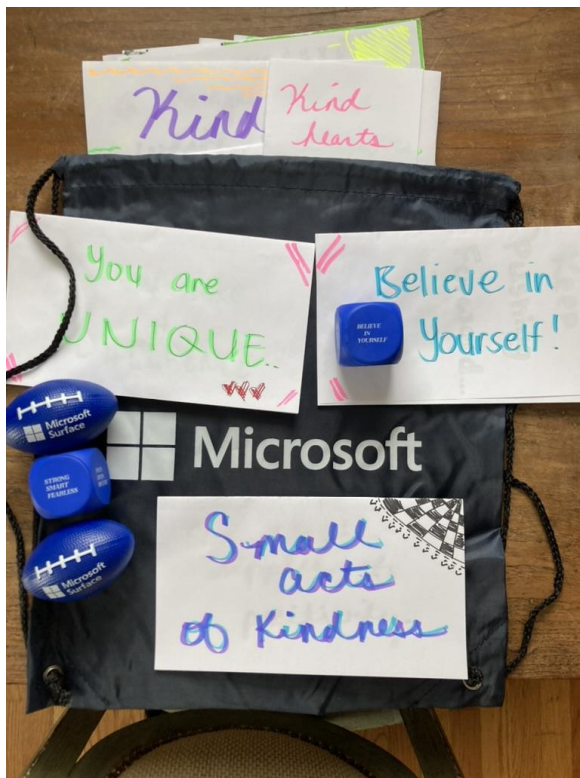 Kind
Kind
hearts
You are
UNIQUE..
Believe in
Yourself!
BELIEVE
IN
YOURSELF
Microsoft
Surface
STRONG
SMART
FEARLESS
Microsoft
Microsoft
Surface
Small
acts
of Kindness